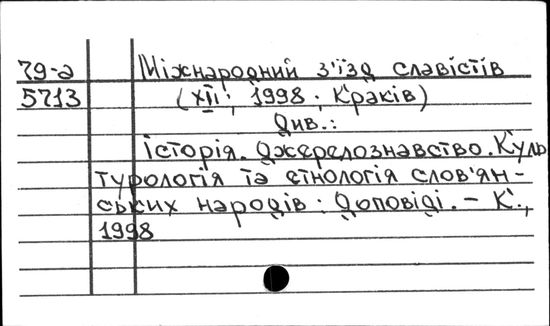 79-а Міжнародний з'їзд славістів
5713 (XII; 1998; Краків)
Див.:
Історія. Джерелознавство. Куль
турологія та етнологія слов'ян-
ських народів: Доповіді. – К.,
1998